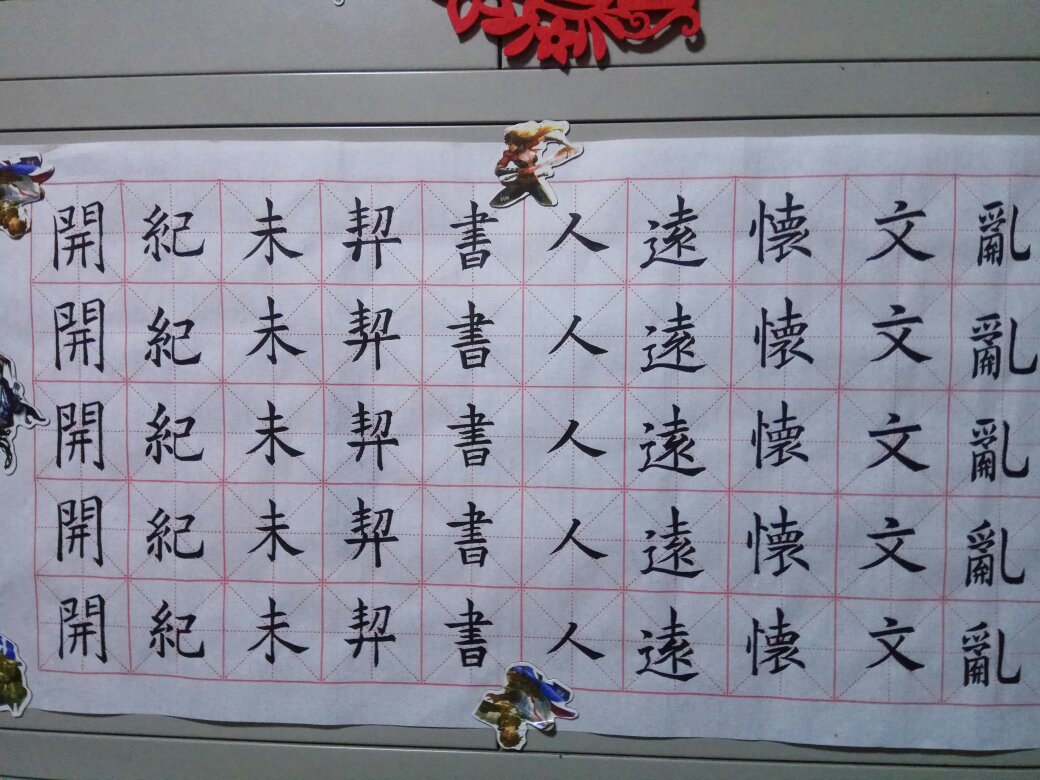 亂亂亂亂亂
文文文文文
懷懷懷懷懷
遠遠遠遠遠
人人人人人
書書書書書
契契契契契
未未未未未
紀紀紀紀紀
開開開開開